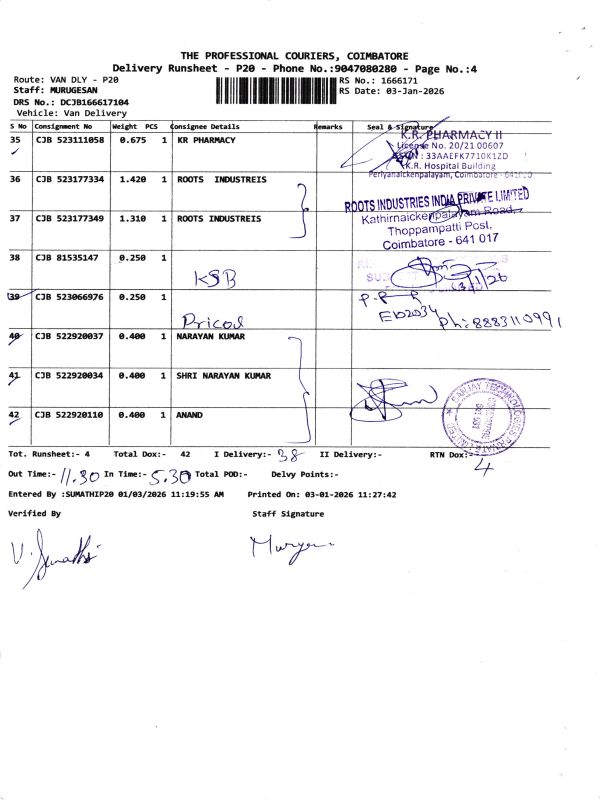 THE PROFESSIONAL COURIERS, COIMBATORE
Delivery Runsheet - P20 - Phone No.:9047080280 - Page No.:4
Route: VAN DLY - P20
RS No.: 1666171
Staff: MURUGESAN
RS Date: 03-Jan-2026
DRS No.: DCJB166617104
Vehicle: Van Delivery
S No Consignment No Weight PCS Consignee Details Remarks Seal & Signature
35 CJB 523111058 0.675 1 KR PHARMACY
K.R. PHARMACY II
License No. 20/21 00607
: 33AAEFK7710K1ZD
K.R. Hospital Building
Periyanaickenpalayam, Coimbatore - 641020
36 CJB 523177334 1.420 1 ROOTS INDUSTREIS
ROOTS INDUSTRIES INDIA PRIVATE LIMITED
Kathirnaickenpalayam Road,
37 CJB 523177349 1.310 1 ROOTS INDUSTREIS
Thoppampatti Post,
Coimbatore - 641 017
38 CJB 81535147 0.250 1
KSB
39 CJB 523066976 0.250 1
Pricol
Eb2034
Ph: 8883110991
40 CJB 522920037 0.400 1 NARAYAN KUMAR
41 CJB 522920034 0.400 1 SHRI NARAYAN KUMAR
SANJAY TECHNOLOGIES PRIVATE LIMITED
42 CJB 522920110 0.400 1 ANAND
Tot. Runsheet:- 4 Total Dox:- 42 I Delivery:- 38 II Delivery:- RTN Dox:- 4
Out Time:- 11.30 In Time:- 5.30 Total POD:- Delvy Points:-
Entered By :SUMATHIP20 01/03/2026 11:19:55 AM Printed On: 03-01-2026 11:27:42
Verified By Staff Signature
V. Sumathi